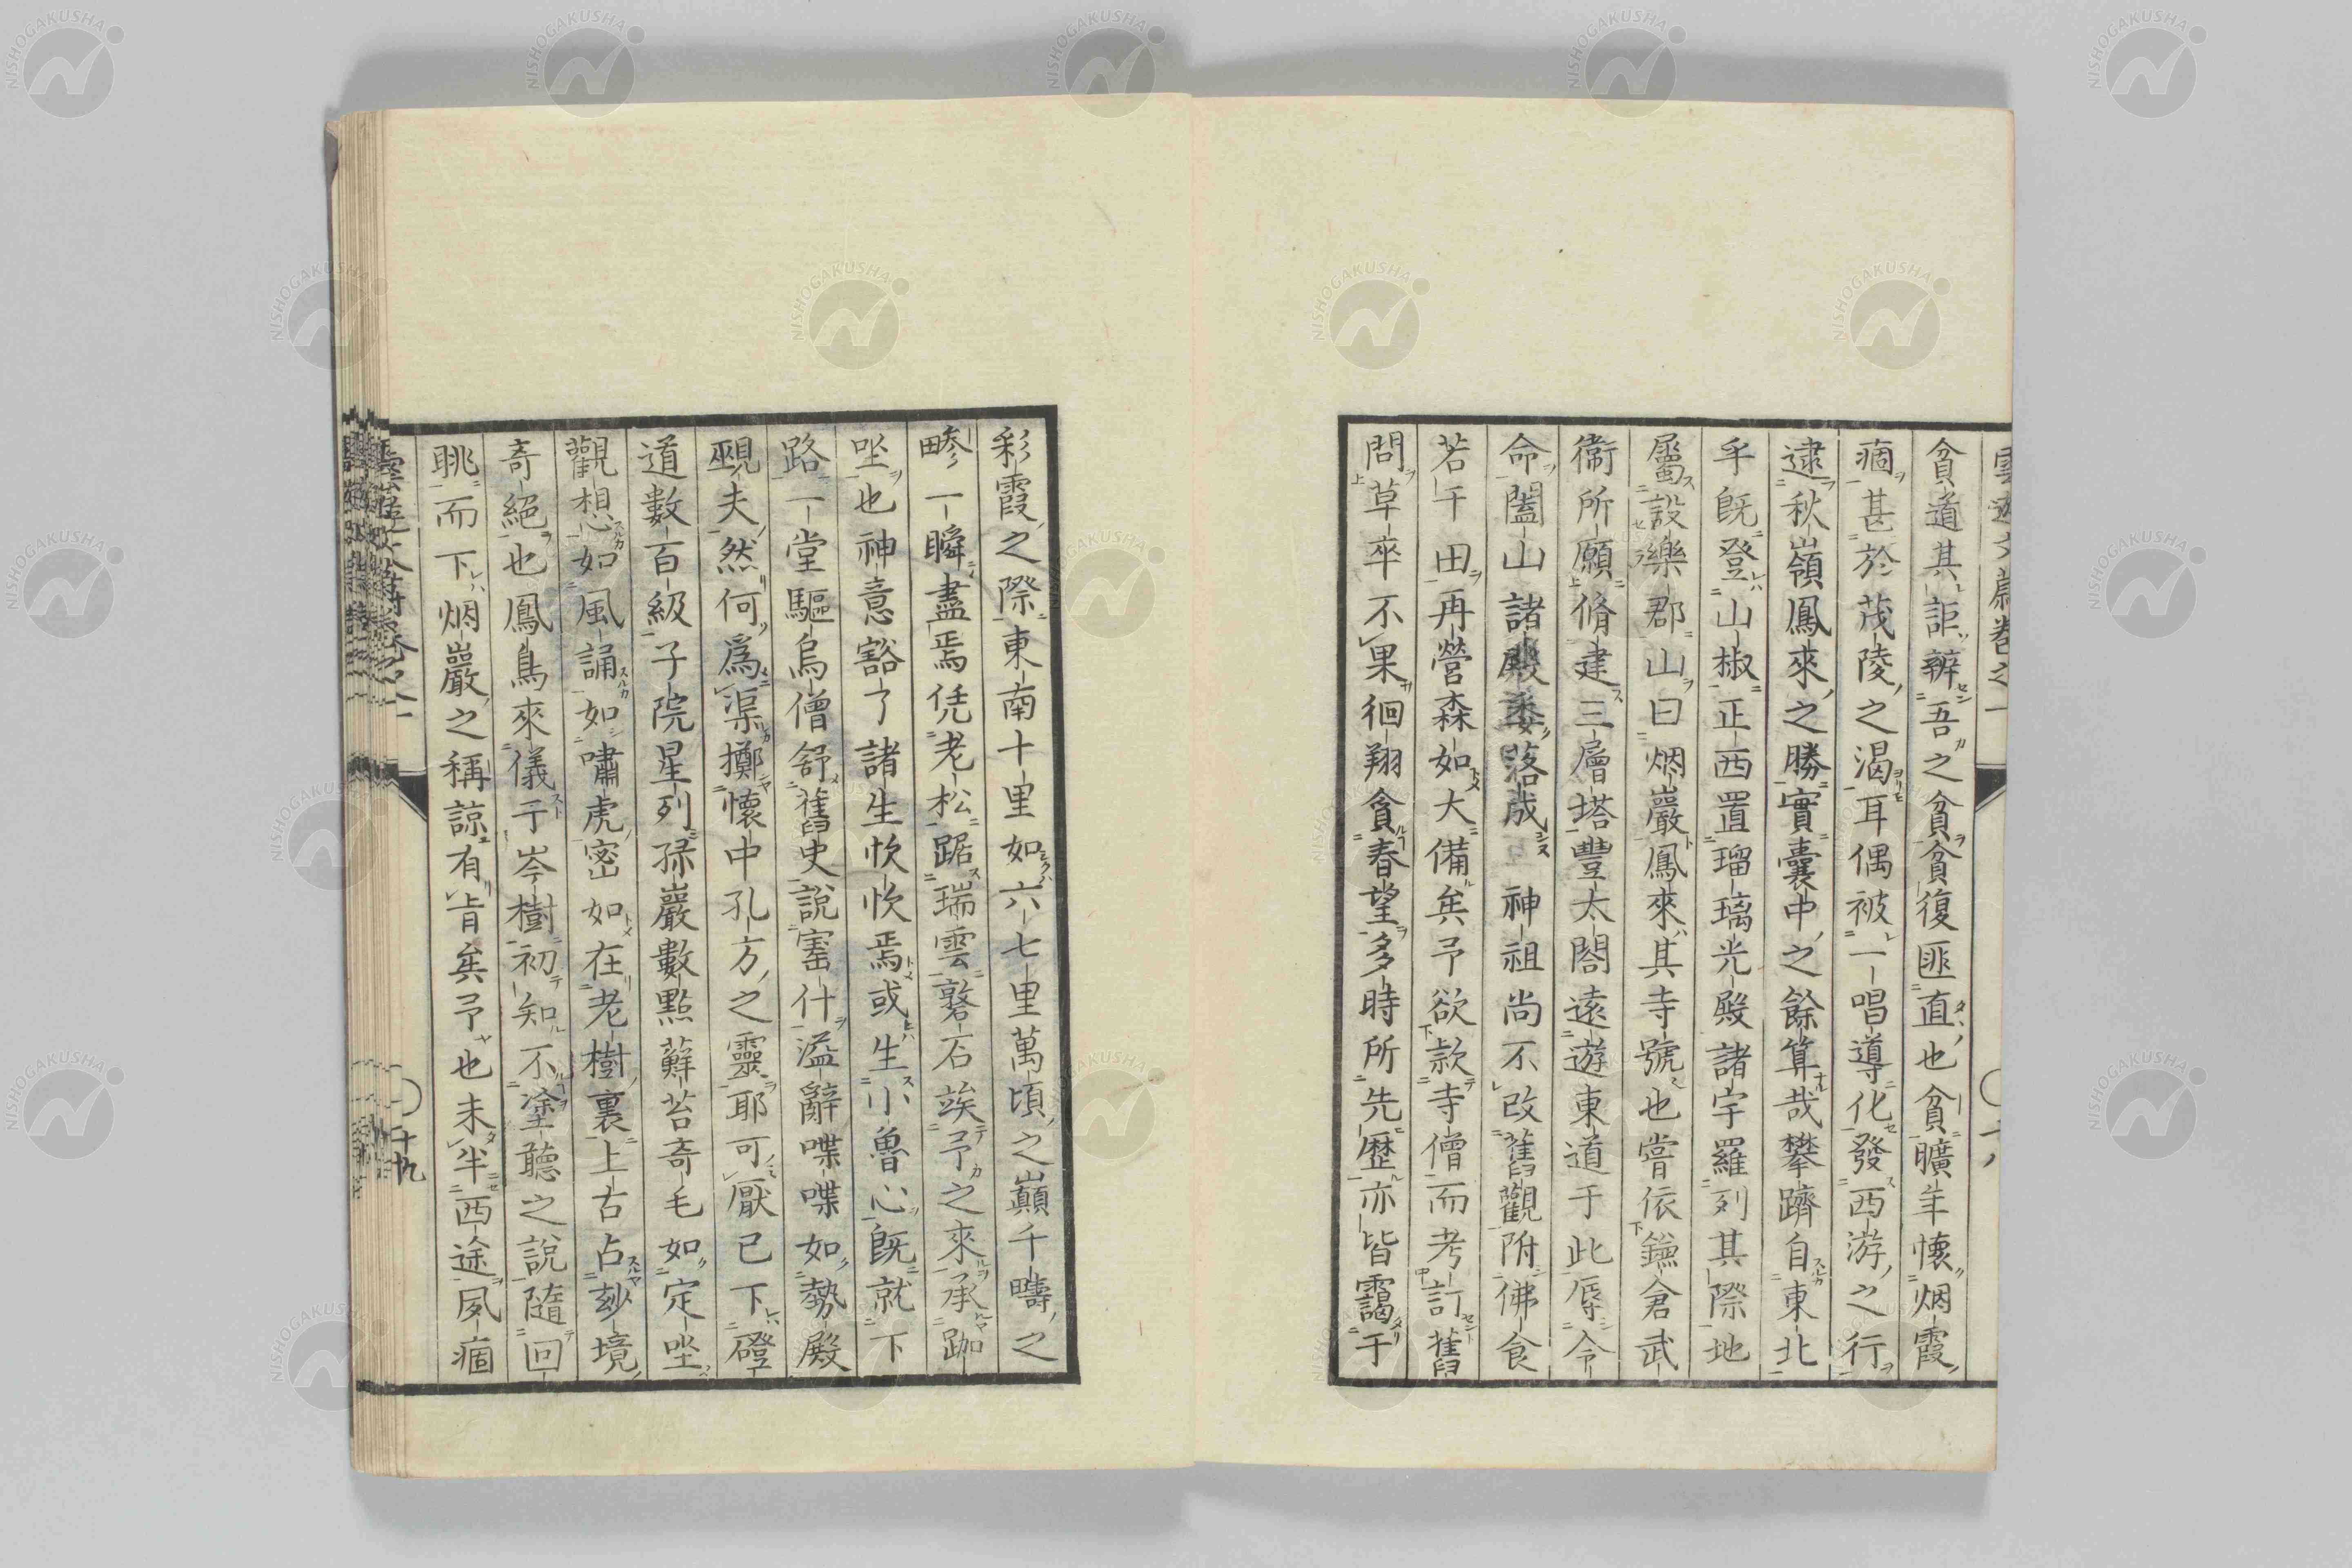 貧遁其詎辨吾之貧貧復匪直也貧曠年懷烟霞
痼甚於茂陵之渴耳偶被一唱導化發西游之行
逮秋嶺鳳來之勝實囊中之餘算哉攀躋自東北
乎既登山椒正西置瑠璃光殿諸宇羅列其際地
屬設樂郡山曰烟巖鳳來其寺號也嘗依鎌倉武
衞所願脩建三層塔豐太閤遠遊東道于此辱令
命闔山諸殿落成神祖尚不改舊觀附佛食
若干田再營森如大備矣予欲款寺僧而考訂舊
問草卒不果徊翔貪春望多時所先歷亦皆靄于
彩霞之際東南十里如六七里萬頃之巔千疇之
畛一瞬盡焉凭老松踞瑞雲磬石竢予之來承跏
坐也神意豁了諸生忺忺焉或生小魯心既就下
路一堂驅烏僧舒舊史說窰什溢辭喋喋如勢殿
覡夫然何爲渠擲懷中孔方之靈耶可厭已下磴
道數百級子院星列孫巖數點蘚苔奇毛如定坐
觀想如風誦如嘯虎密如在老樹裏上古占玅境
奇絕也鳳鳥來儀于岑樹初知不塗聽之說隨回
眺而下烟巖之稱諒有肯矣予也未半西途夙痼
十九